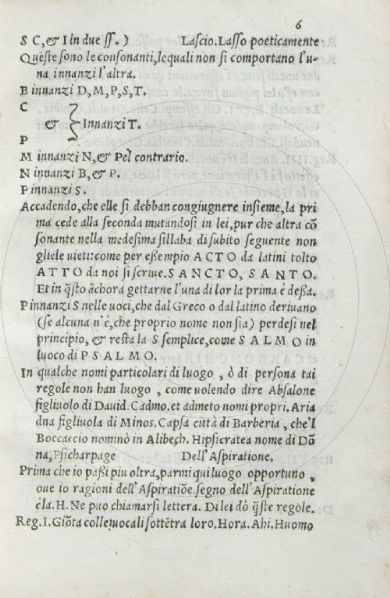 6
S C, & I in due ſſ. ) Laſcio. Laſſo poeticamente
Queſte ſono le conſonanti, le quali non ſi comportano l'u-
na innanzi l'altra.
B innanzi D, M, P, S, T.
C
& } Innanzi T.
P
M innanzi N, & Pel contrario.
N innanzi B, & P.
P innanzi S.
Accadendo, che elle ſi debban congiugnere inſieme, la pri
ma cede alla ſeconda mutandoſi in lei, pur che altra cõ
ſonante nella medeſima ſillaba di ſubito ſeguente non
gliele uieti: come per eſſempio ACTO da latini tolto
ATTO da noi ſi ſcriue. SANCTO, SANTO.
Et in q̃ſto ãchora gettarne l'una di lor la prima è deſſa.
P innanzi S nelle uoci, che dal Greco o dal latino deriuano
(ſe alcuna n'è, che proprio nome non ſia) perdeſi nel
principio, & reſta la S ſemplice, come SALMO in
luoco di PSALMO.
In qualche nomi particolari di luogo, ò di perſona tai
regole non han luogo, come uolendo dire Abſalone
figliuolo di Dauid. Cadmo. et admeto nomi propri. Aria
dna figliuola di Minos. Capſa città di Barberia, che'l
Boccaccio nominò in Alibech. Hipſicratea nome di Dõ
na, Pſicharpage Dell'Aſpiratione.
Prima che io paſſi piu oltra, parmi qui luogo opportuno,
oue io ragioni dell'Aſpiratiõe. ſegno dell'Aſpiratione
è la. H. Ne puo chiamarſi lettera. Di lei dò q̃ſte regole.
Reg. I. Giõta colle uocali ſottẽtra loro. Hora. Ahi. Huomo